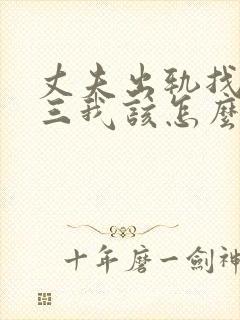 丈夫出轨找
三我該怎麼
十年磨一劍神